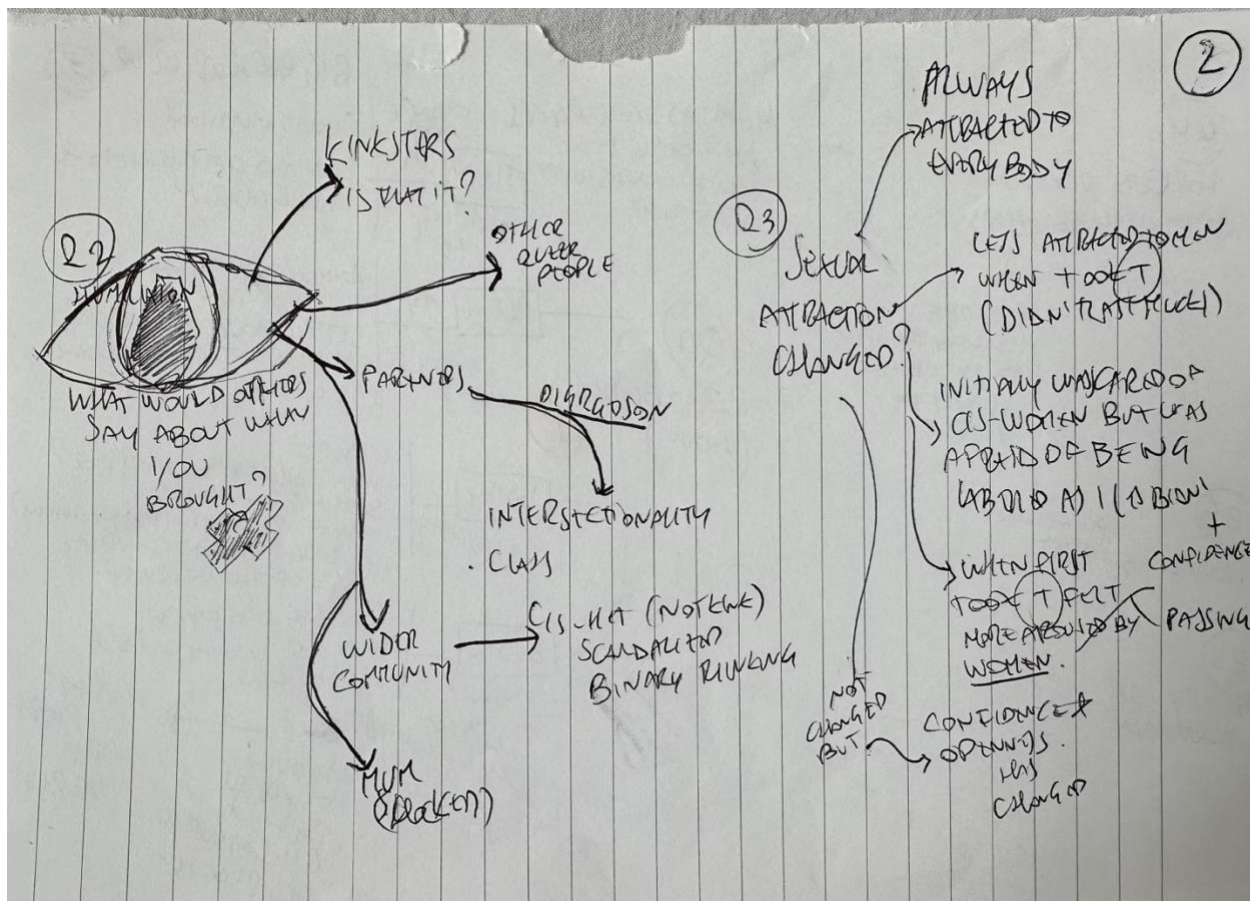 2
Q2
WHAT WOULD OTHERS
SAY ABOUT WHAT
YOU
BROUGHT?
KINKSTERS
IS THAT IT?
OTHER
QUEER
PEOPLE
PARTNERS
INTERSECTIONALITY
. CLASS
WIDER
COMMUNITY
CIS-HET
SCANDALIZED
BINARY THINKING
MUM
(SHOCKED)
Q3
SEXUAL
ATTRACTION
CHANGED?
ALWAYS
ATTRACTED TO
EVERYBODY
LESS ATTRACTED TO MEN
WHEN TOOK T
(DIDN'T LAST MUCH)
INITIALLY SCARED OF
CIS-WOMEN BUT WAS
AFRAID OF BEING
LABELED AS LESBIAN
WHEN FIRST
TOOK T FELT
MORE AROUSED BY
WOMEN.
+
CONFIDENCE
PASSING
NOT
CHANGED
BUT
CONFIDENCE &
OPENNESS.
HAS
CHANGED